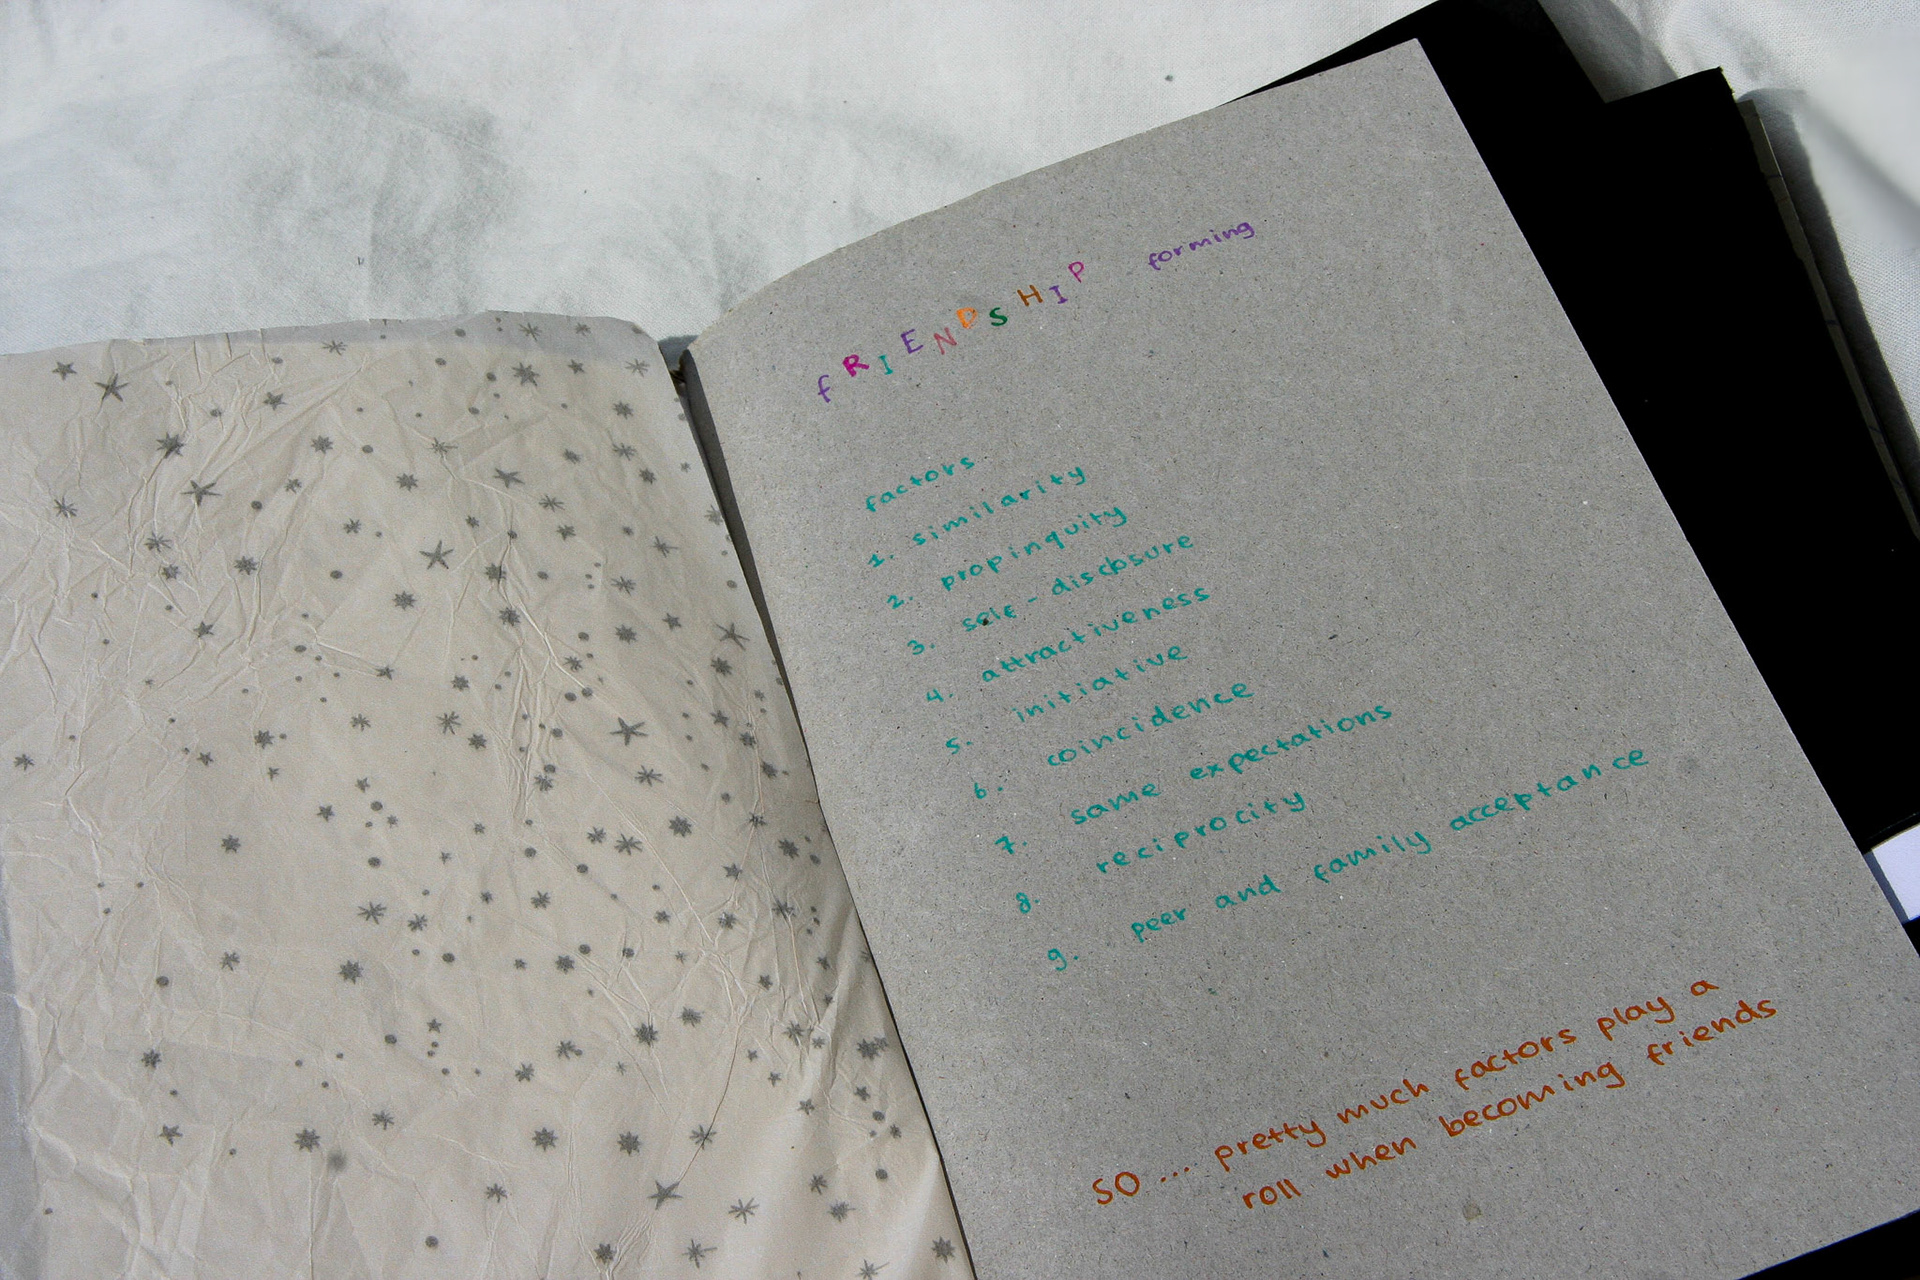 fRIENDSHIP forming
factors
1. similarity
2. propinquity
3. self-disclosure
4. attractiveness
5. initiative
6. coincidence
7. same expectations
8. reciprocity
9. peer and family acceptance
SO.... pretty much factors play a
roll when becoming friends